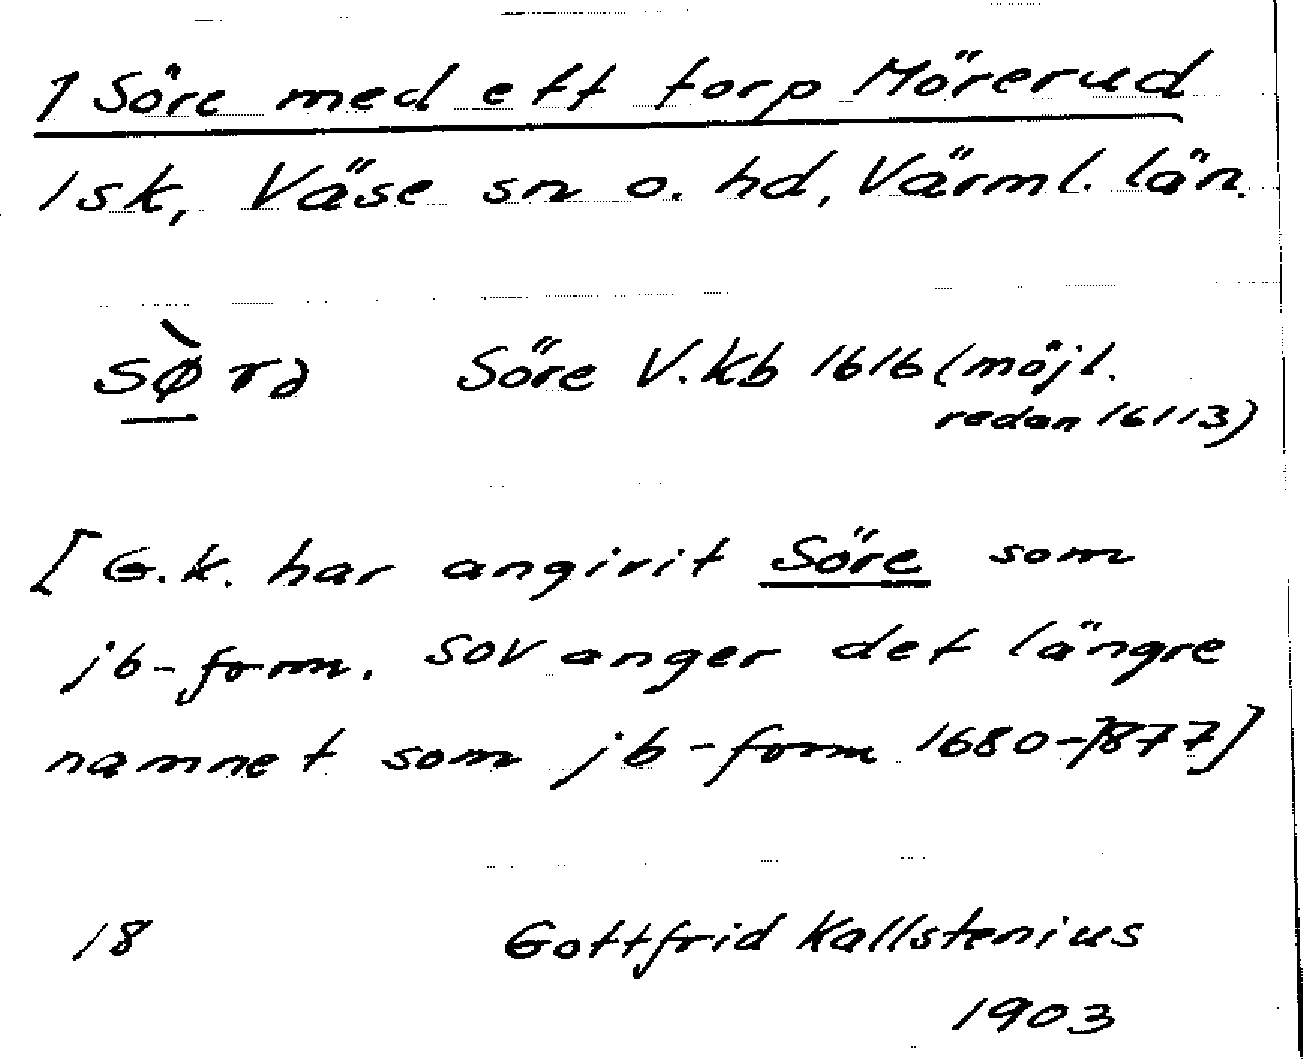 1 Söre med ett torp Mörerud
1 sk, Väse sn o. hd, Värml. län.
sø̀rə Söre V.kb 1616 (möjl.
redan 16113)
[G.K. har angivit Söre som
jb-form. SOV anger det längre
namnet som jb-form 1680-1877]
18 Gottfrid Kallstenius
1903